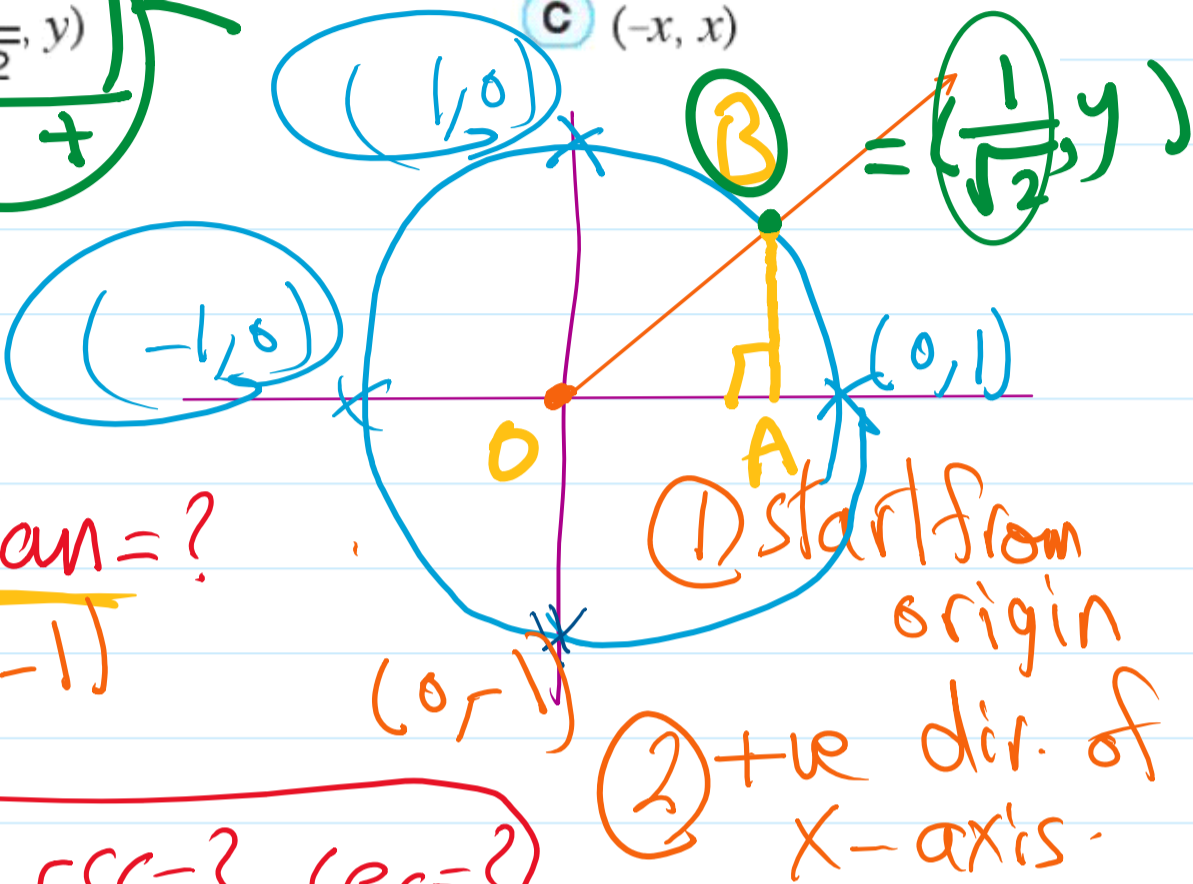 , y)
2
+
C (–x, x)
(1,0)
B
= (1/√2, y)
(-1,0)
(0,1)
O
A
an=?
-1)
① start from
origin
(0,-1)
② +ve dir. of
x-axis.